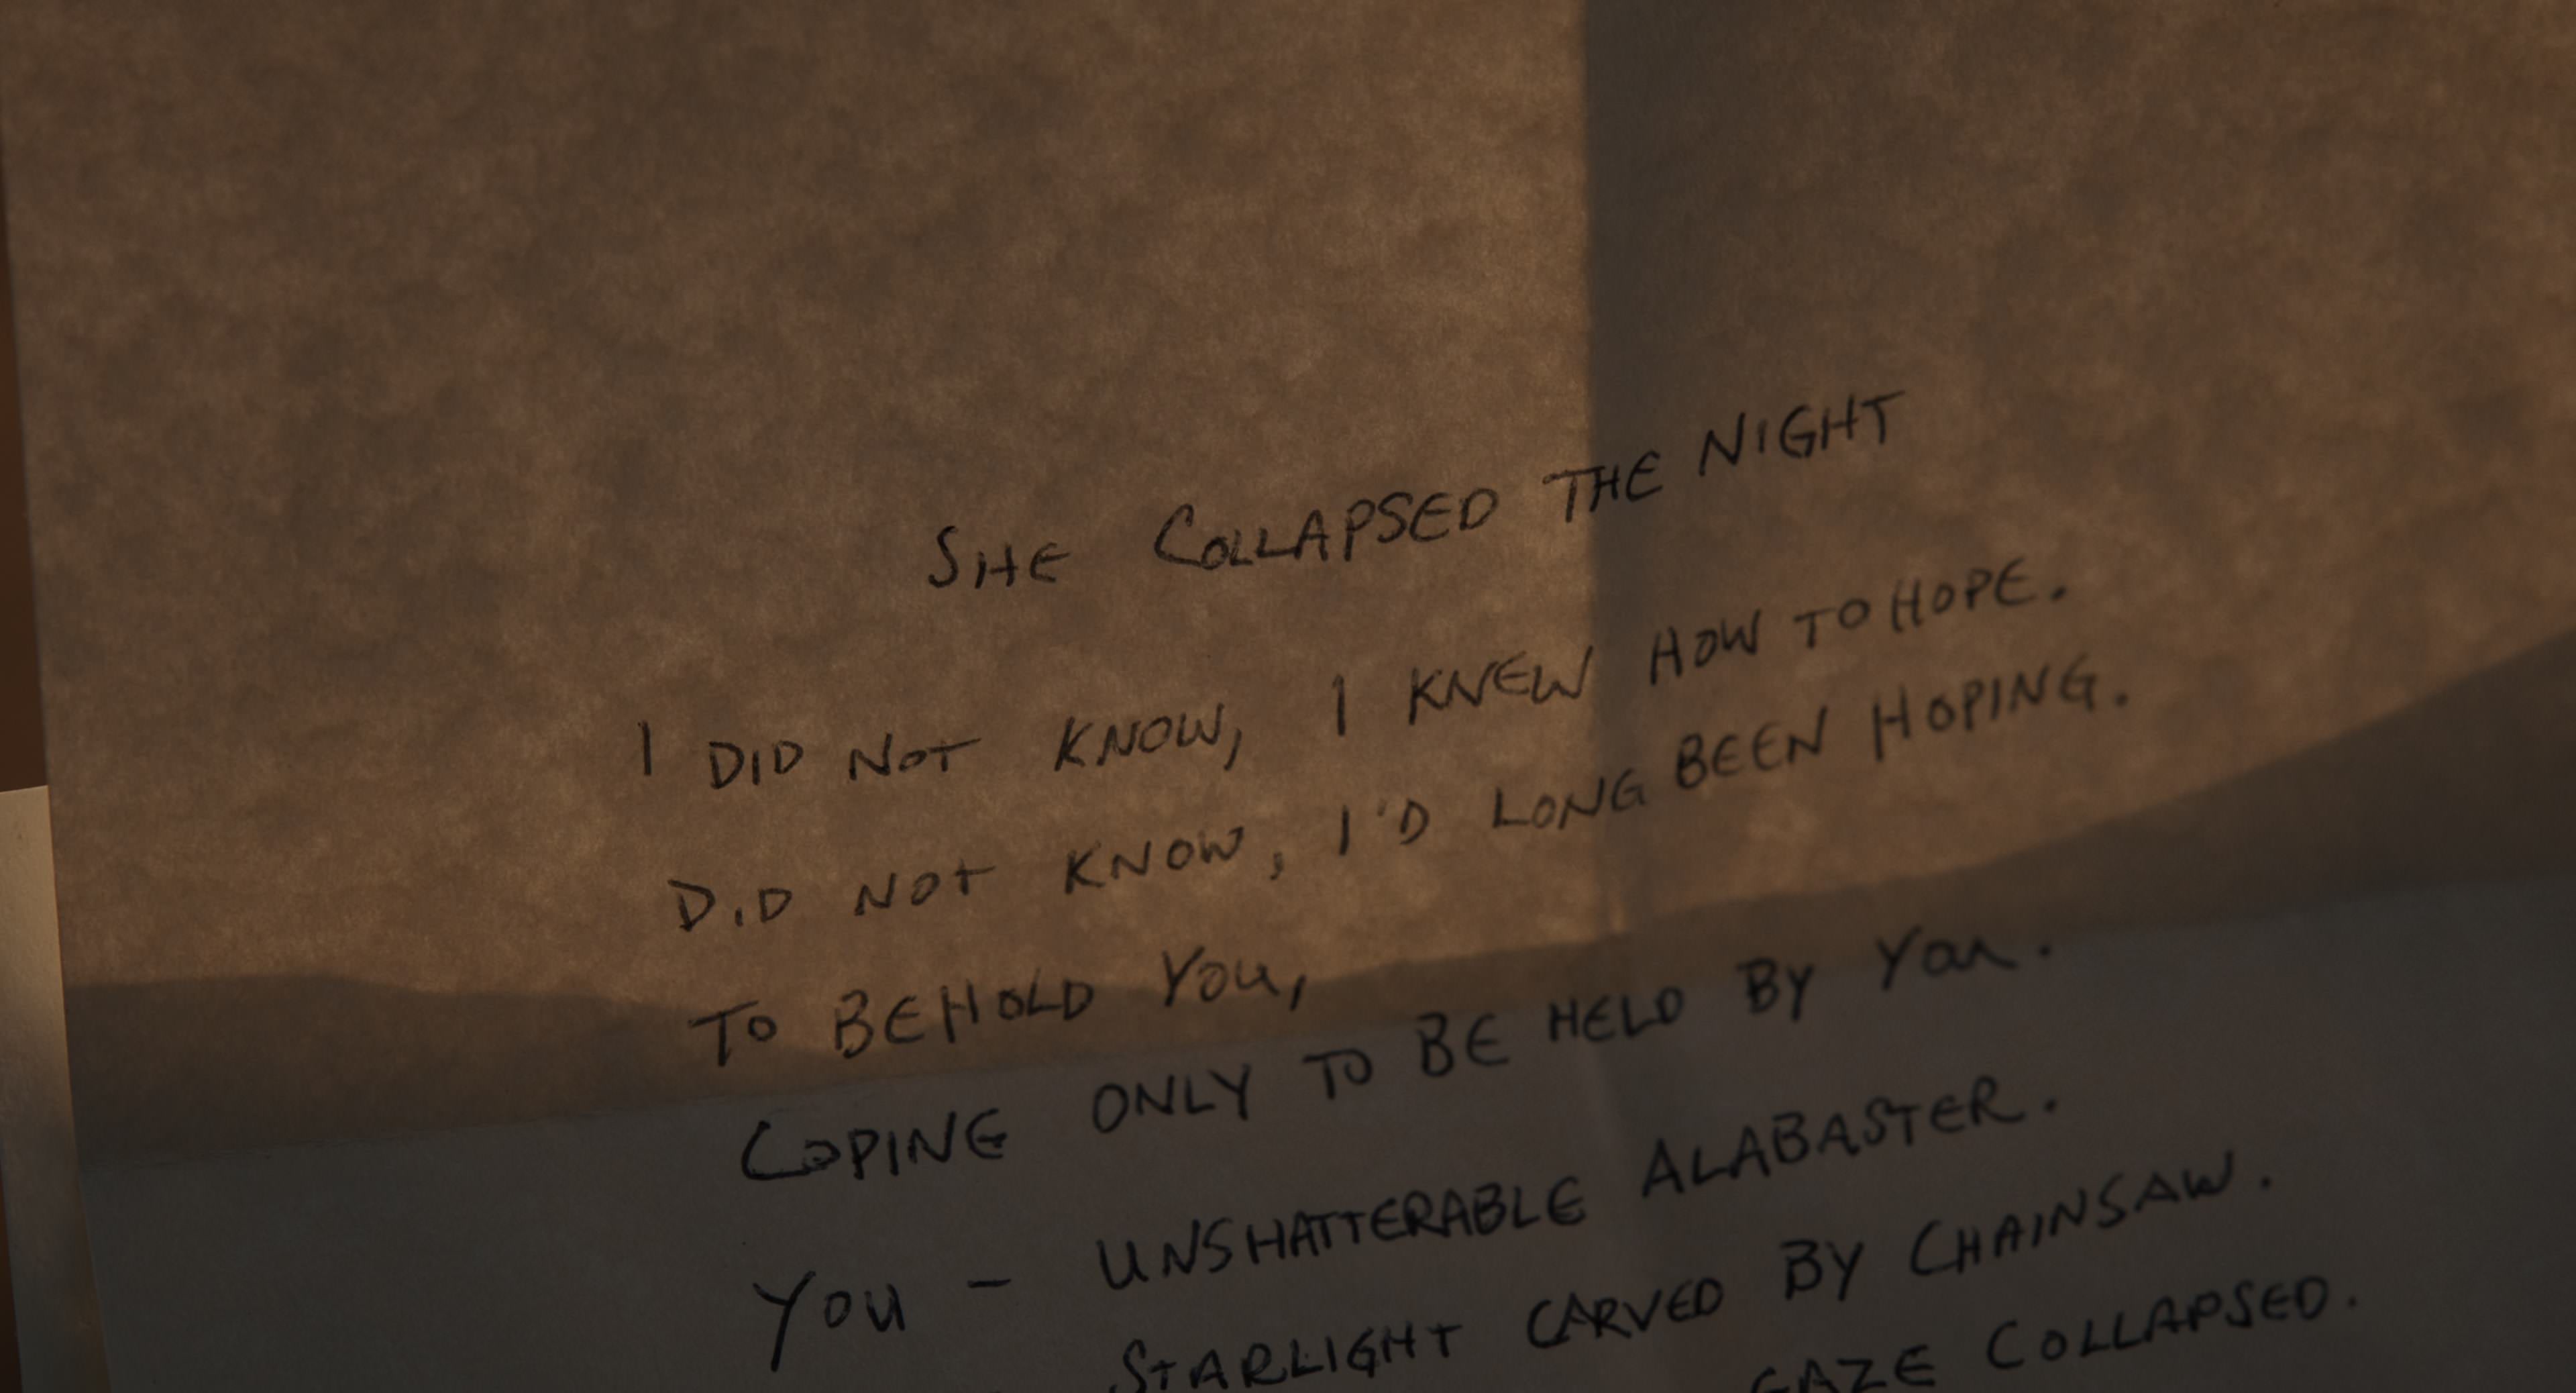 SHE COLLAPSED THE NIGHT
I DID NOT KNOW, I KNEW HOW TO HOPE.
DID NOT KNOW, I'D LONG BEEN HOPING.
TO BEHOLD YOU,
COPING ONLY TO BE HELD BY YOU.
YOU – UNSHATTERABLE ALABASTER.
STARLIGHT CARVED BY CHAINSAW.
GAZE COLLAPSED.